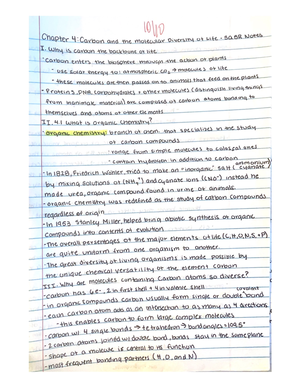 10/10
Chapter 4: Carbon and the Molecular Diversity of Life - SQ SR Notes
I. Why is carbon the backbone of life
- carbon enters the biosphere through the action of plants
- use solar energy to: atmospheric CO2 → molecules of life
- these molecules are then passed on to animals that feed on the plants
- Proteins, DNA, carbohydrates & other molecules (distinguish living things
from inanimate material) are composed of carbon atoms bonding to
themselves and atoms of other elements
II. 4.1 What is organic Chemistry?
- Organic Chemistry: branch of chem that specializes in the study
of carbon compounds
- range from simple molecules to colossal ones
- contain hydrogen in addition to carbon
- In 1828, Friedrich Wohler, tried to make an "inorganic" salt (ammonium cyanate)
by mixing solutions of (NH4+) and cyanate ions (CNO-) instead he
made urea, organic compound found in urine of animals
- organic chemistry was redefined as the study of carbon compounds
regardless of origin
- In 1953 Stanley Miller, helped bring abiotic synthesis of organic
compounds into contents of evolution
- The overall percentages of the major elements of life (C, H, O, N, S, + P)
are quite uniform from one organism to another
- The great diversity of living organisms is made possible by
the unique chemical versatility of the element carbon
III. Why are molecules containing carbon atoms so diverse?
- carbon has 6e-, 2 in first shell + 4 in valence shell
- in organic compounds carbon usually form single or double covalent bond
- each carbon atom acts as an intersection to as many as 4 directions
- this enables carbon to form large complex molecules
- carbon w/ 4 single bonds → tetrahedron > bond angles = 109.5°
- 2 carbon atoms joined w/ double bond, bonds stay in the same plane
- shape of a molecule is central to its function
- most frequent bonding partners (H, O, and N)